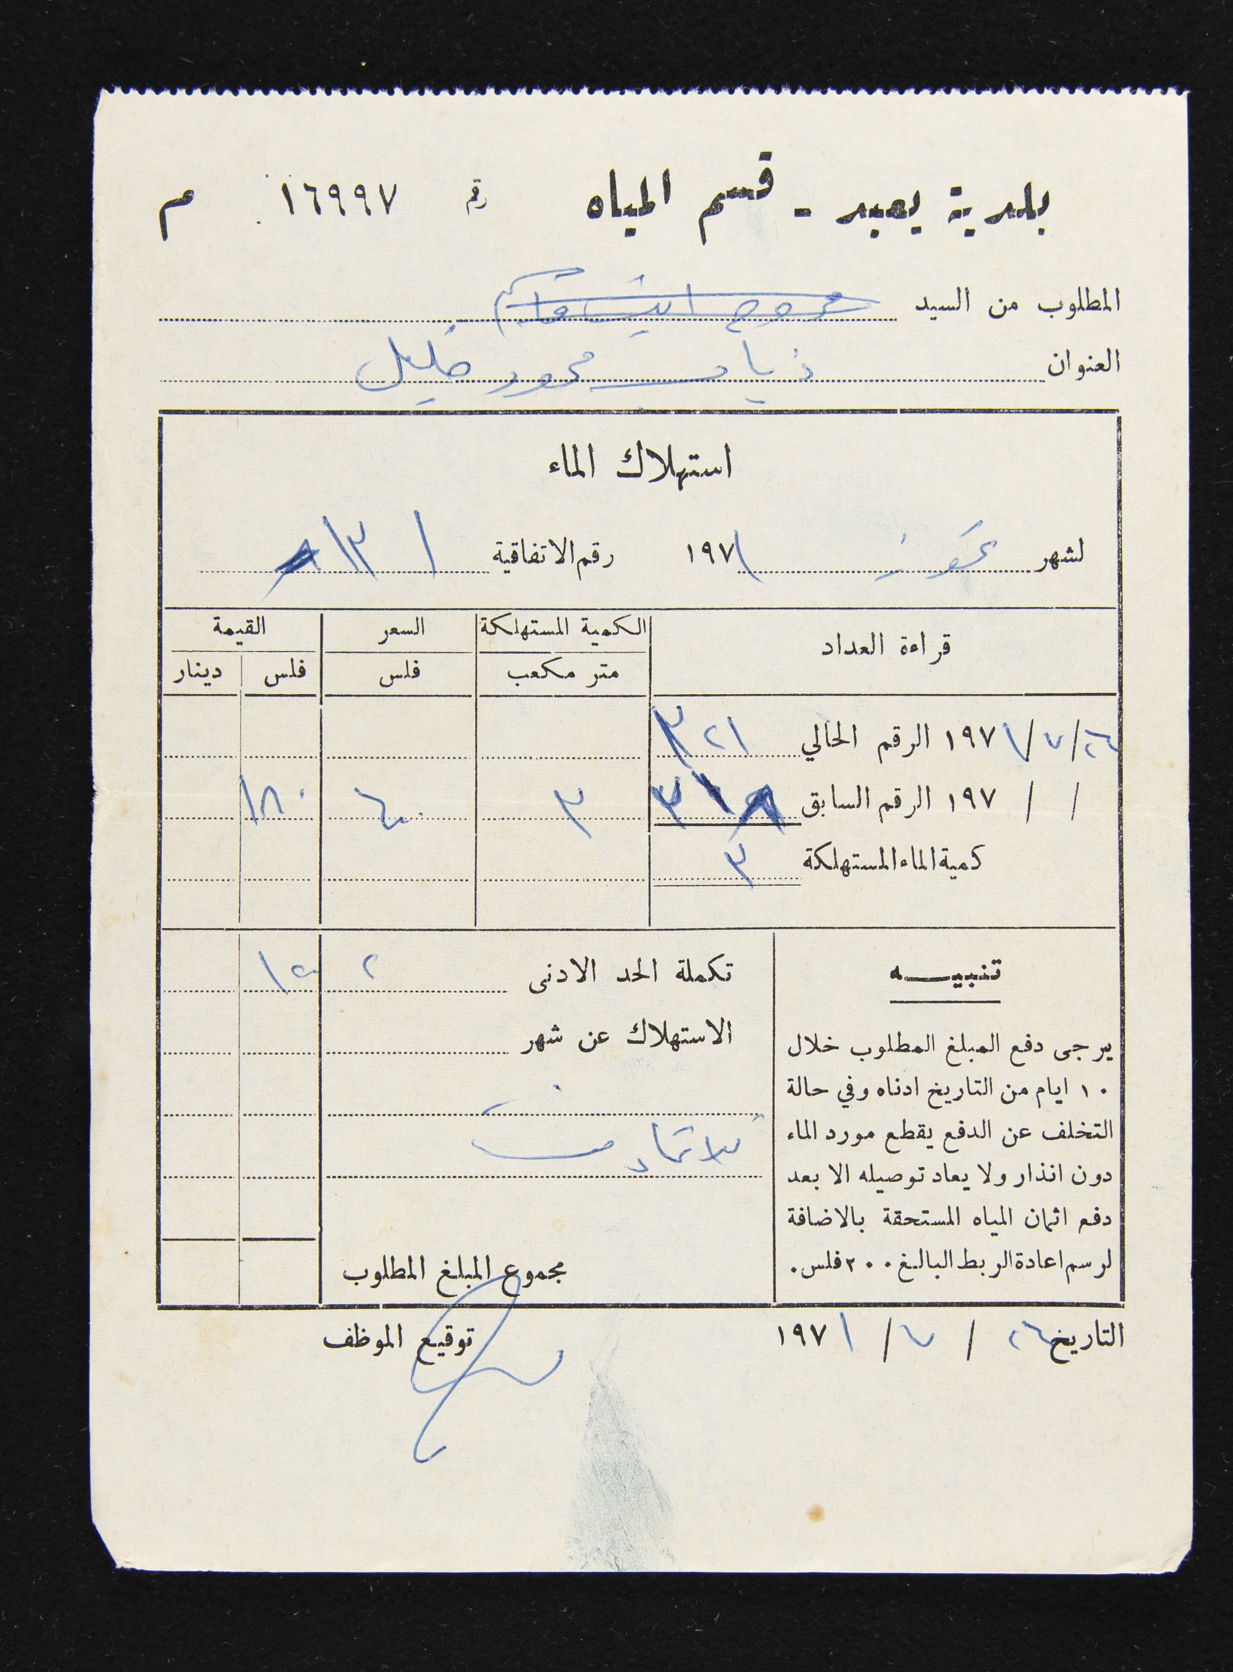 بلدية يعبد - قسم المياه رقم ١٦٩٩٧ م
المطلوب من السيد
العنوان ذياب محمود خليل
استهلاك الماء
لشهر تموز ١٩٧١ رقم الاتفاقية ١٣١
قراءة العداد الكمية المستهلكة السعر القيمة
متر مكعب فلس فلس دينار
٢٦/٧/١٩٧١ الرقم الحالي ٣٢١
/ / ١٩٧ الرقم السابق ٣١٨ ٣ ٦٠ ١٨٠
كمية الماء المستهلكة ٣
تنبيـــه
يرجى دفع المبلغ المطلوب خلال
١٠ ايام من التاريخ ادناه وفي حالة
التخلف عن الدفع يقطع مورد الماء
دون انذار ولا يعاد توصيله الا بعد
دفع اثمان المياه المستحقة بالاضافة
لرسم اعادة الربط البالغ ٢٠٠ فلس.
تكملة الحد الادنى ٢ ١٢٠
الاستهلاك عن شهر
مجموع المبلغ المطلوب
التاريخ ٢٦ / ٧ / ١٩٧١ توقيع الموظف